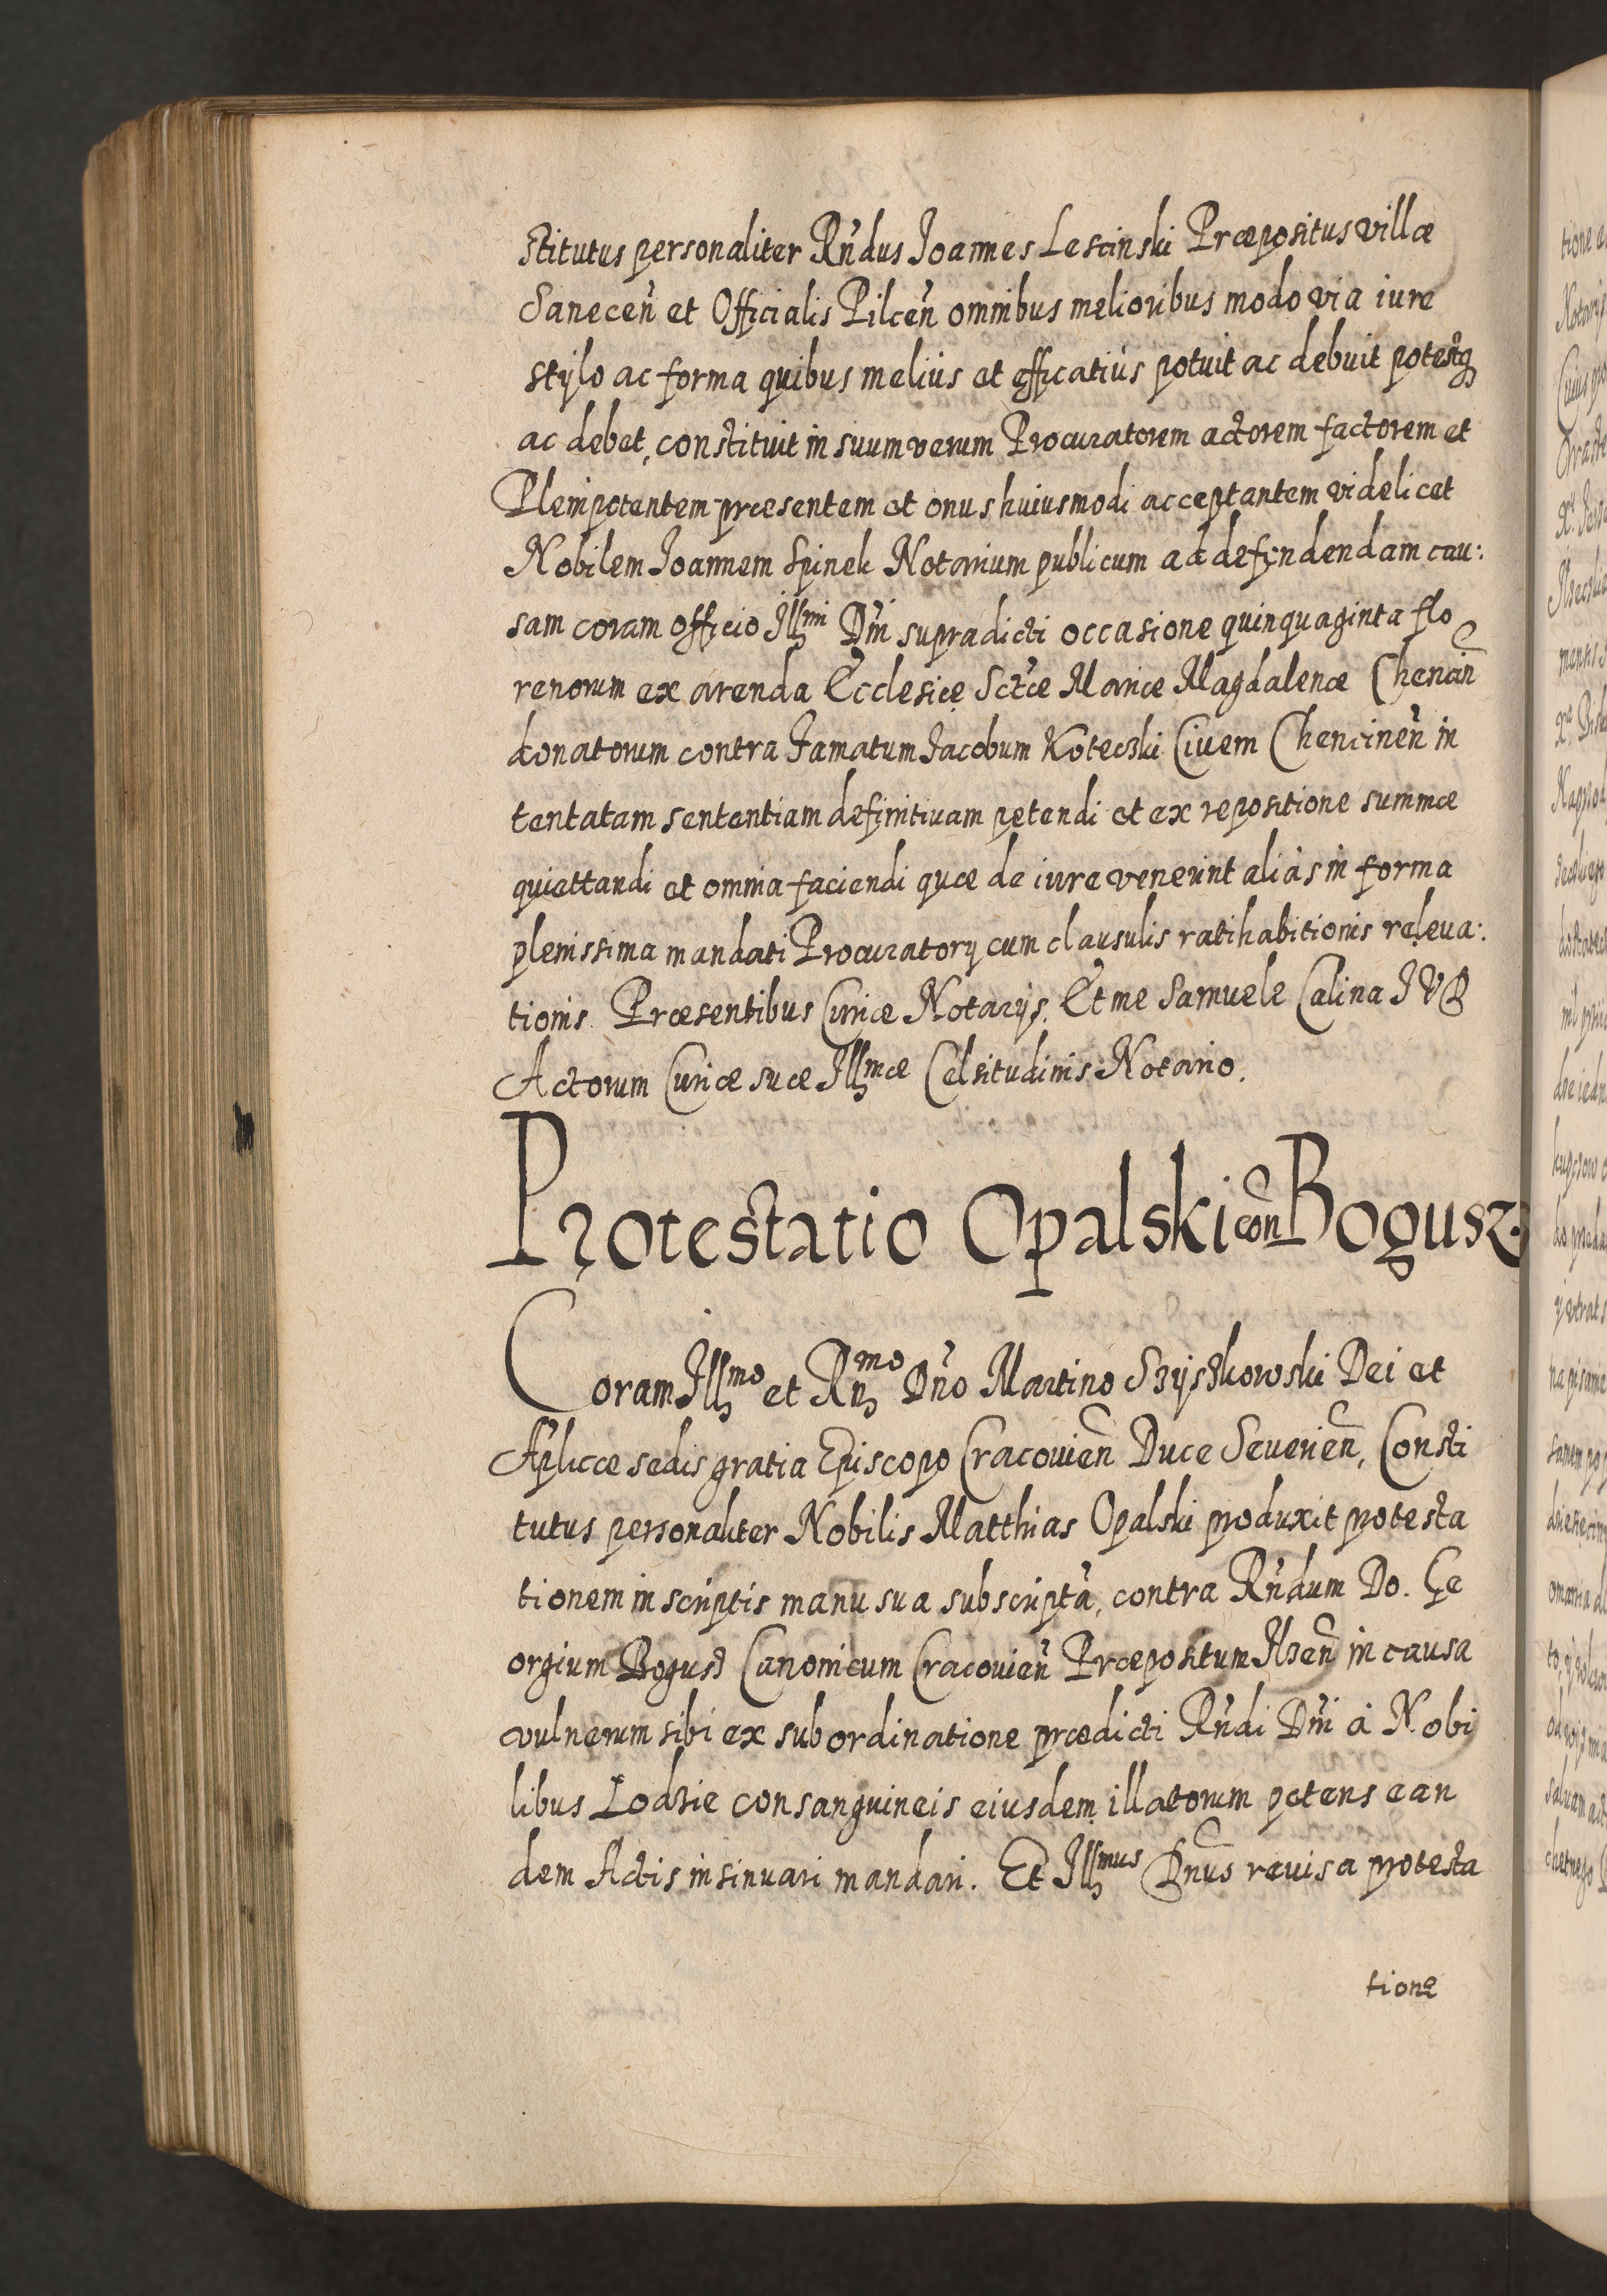 stitutus personaliter Rñdus Joannes Lescinski Præpositus villæ
Saneceñ et Officialis Pilceñ omnibus melioribus modo via iure
stylo ac forma quibus melius et efficatiùs potuit ac debuit potestq
ac debet, constituit in suum verum Procuratorem actorem factorem et
Plenipotentem præsentem et onus huiusmodi acceptantem videlicet
Nobilem Joannem Spinek Notarium publicum ad defendendam cau:
sam coram officio Illmi Dñi supradicti occasione quinquaginta flo
renorum ex arenda Ecclesiæ Sctæ Mariæ Magdalenæ Chenciñ
donatorum contra Famatum Jacobum Koteczki Civem Chencineñ in
tentatam sententiam definitiuam petendi et ex repositione summæ
quiettandi et omnia faciendi quæ de iure venerint aliàs in forma
plenissima mandati Procuratorÿ cum clausulis ratihabitionis releua:
tionis. Præsentibus Curiæ Notarÿs. Et me Samuele Calina JVD
Actorum Curiæ suæ Illmæ Celsitudinis Notario.
Protestatio Opalski con Bogusz.
Coram Illmo et Rmo Dño Martino Szyszkowski Dei et
Aplicæ sedis gratia Episcopo Cracovien̄ Duce Severien̄, Consti
tutus personaliter Nobilis Matthias Opalski produxit protesta
tionem in scriptis manu sua subscriptã, contra Rñdum Do. Ge
orgium Bogusz Canonicum Cracovieñ Præpositum Ilzen̄ in causa
vulnerum sibi ex subordinatione prædicti Rñdi Dñi à Nobi
libus Lodzie consanguineis eiusdem illatorum petens ean
dem Actis insinuari mandari. Et Illmus Dnūs reuisa protesta
tione